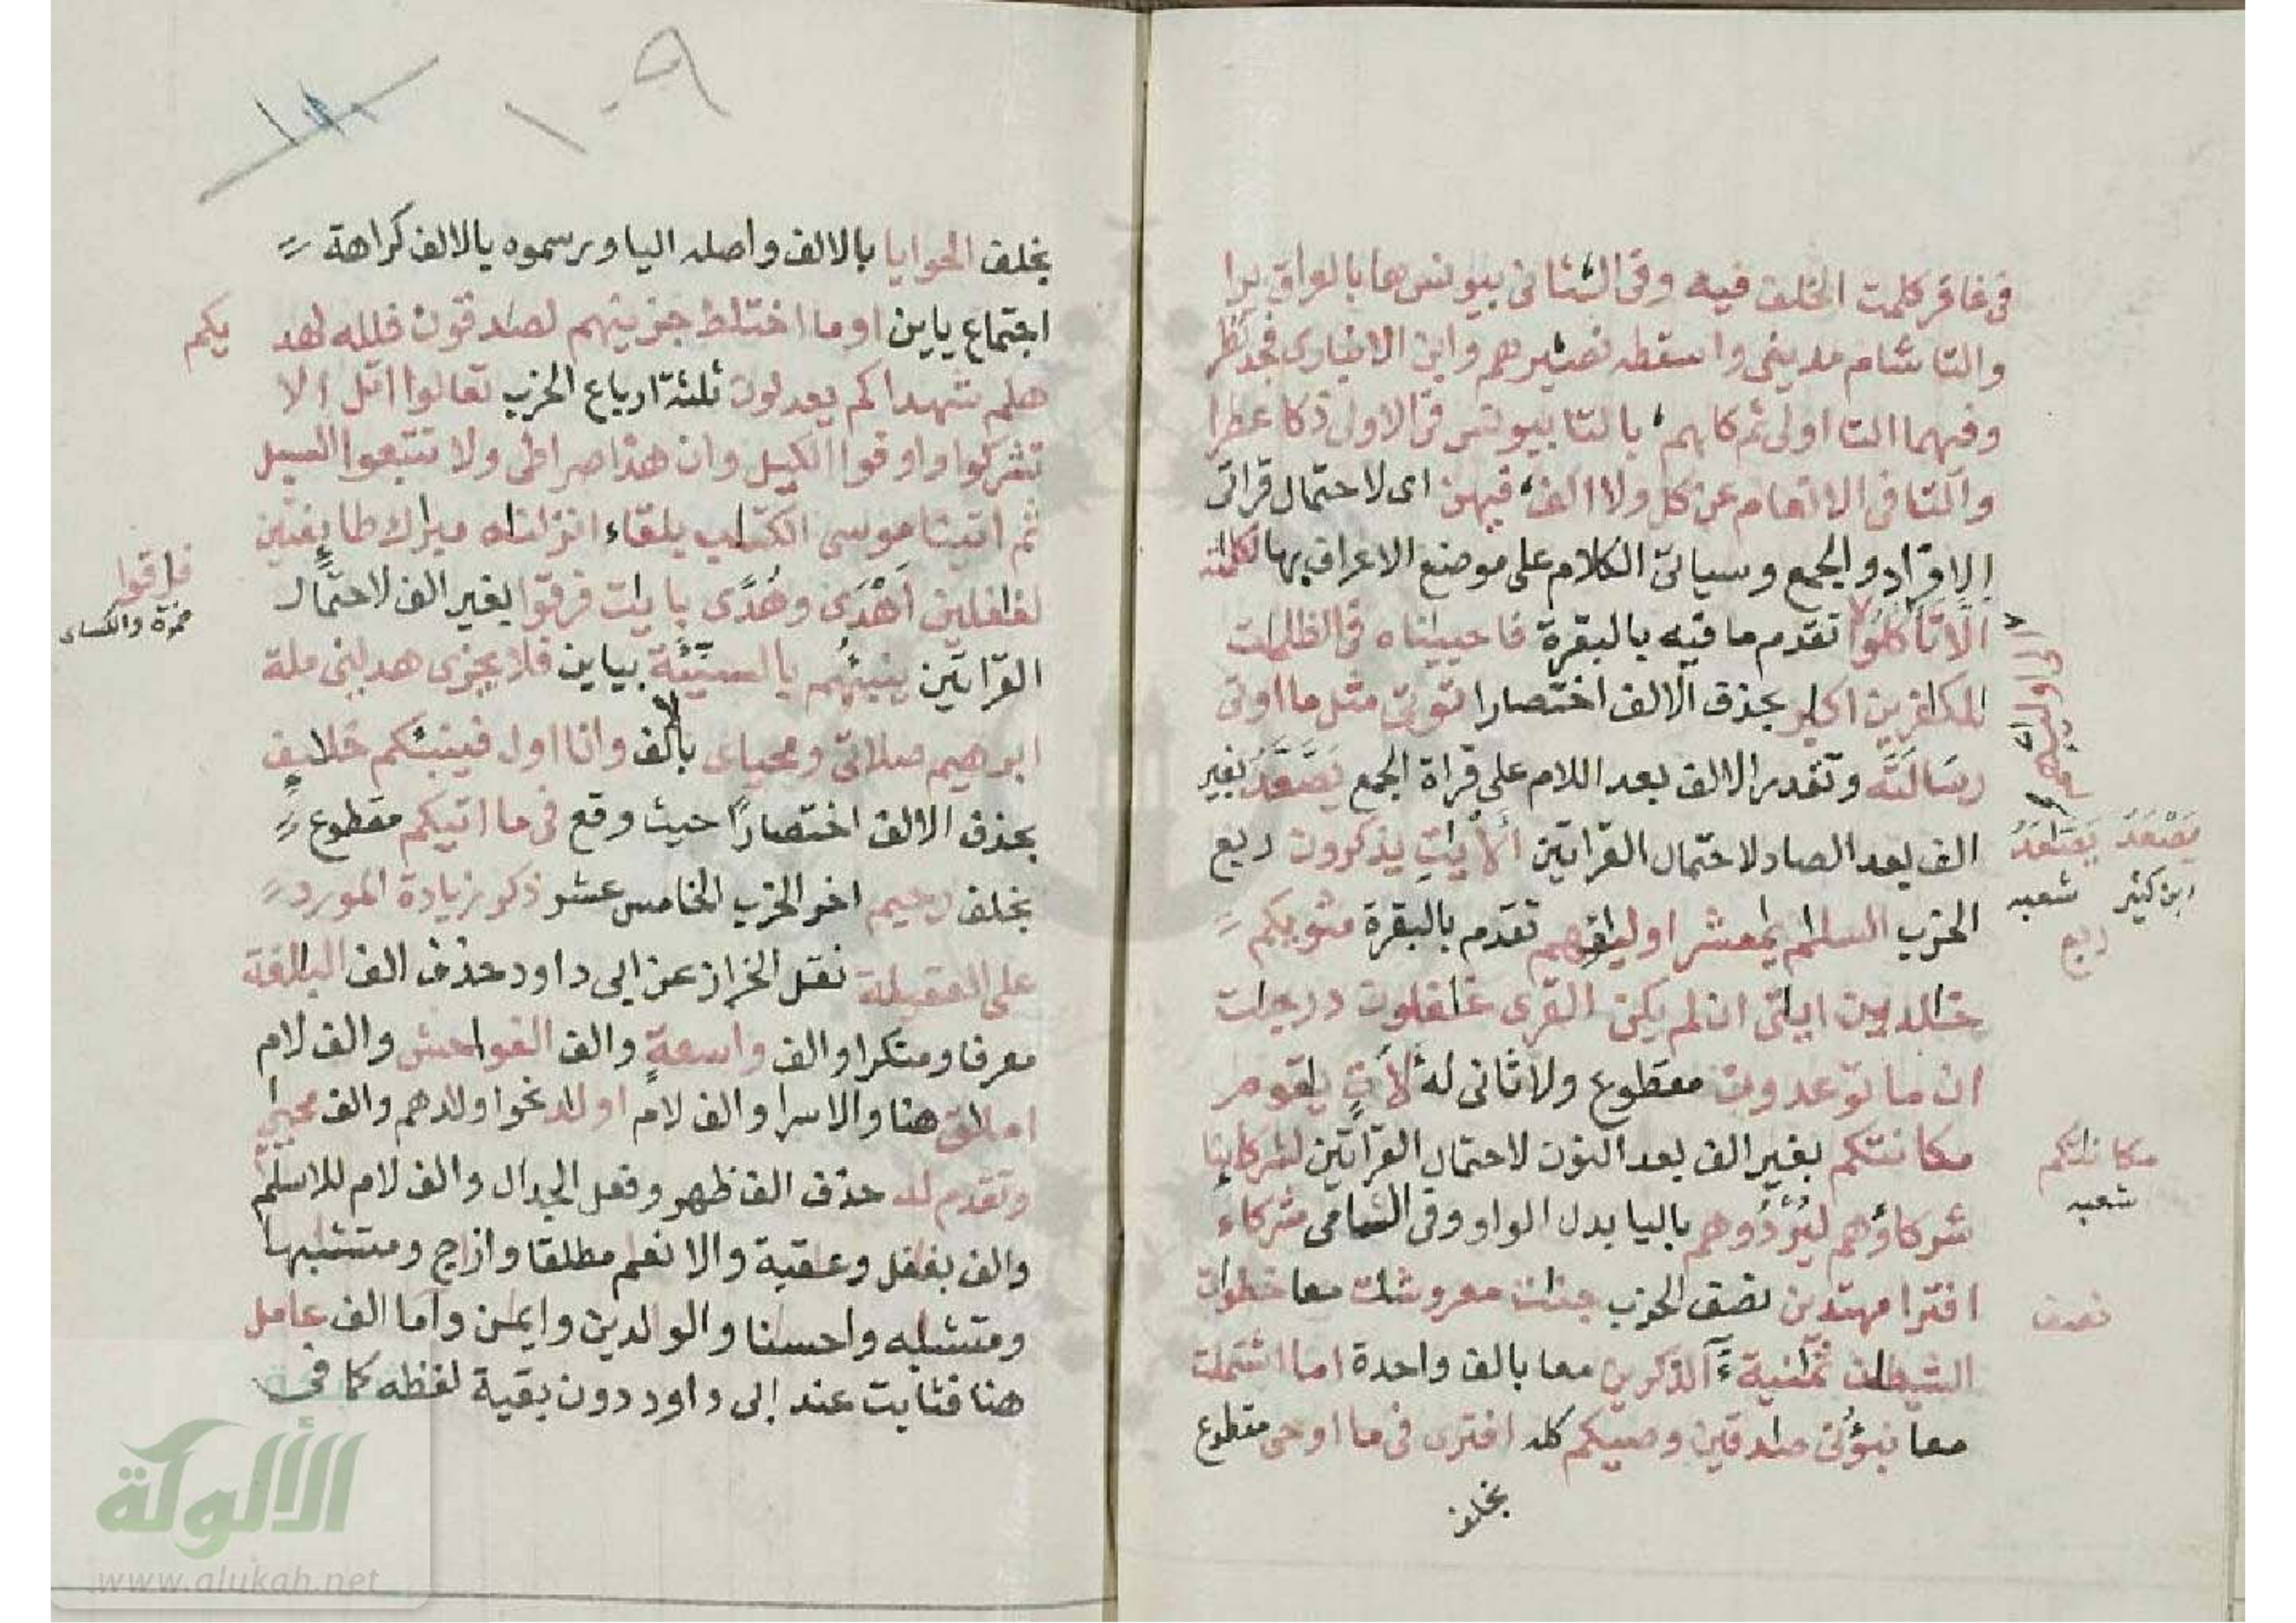 في غافر كلمت الخلف فيه وفي الثاني بيونس هما بالعراق برا
والتا شام مديني واسقطه نصيرهم وابن الانباري فجد نظرا
وفيهما التا اولى ثم كلهم بالتا بيونس في الاولى ذكا عطرا
والتا في الانعام عن كل ولا الف فيهن اى لاحتمال قراتى
الافراد والجمع وسياتى الكلام على موضع الاعراف بها لكلمته
الا تاكلوا تقدم ما فيه بالبقرة فاحيينه في الظلمت
للكفرين اكبر بحذف الالف اختصارا نوتى مثل ما اوتى
رسالته وتقدر الالف بعد اللام على قراة الجمع يصعد بغير
الف بعد الصاد لاحتمال القراتين الايت يذكرون ربع
الحزب السلم يمعشر اولياؤهم تقدم بالبقرة مثويكم
خلدين ايتى ان لم يكن القرى غفلون درجت
ان ما توعدون مقطوع ولا ثانى له لات يقوم
مكانتكم بغير الف بعد النون لاحتمال القراتين لشركاينا
شركاؤهم ليردوهم باليا بدل الواو وفى الشامى شركاء
افترا مهتدين نصف الحزب جنت معروشت معا خطوات
الشيطن ثمنية ءآلذكرين معا بالف واحدة اما اشتملت
معا نبؤنى صدقين وصيكم كله افترى فى ما اوحى مقطوع
بخلف
الى اوليئهم
يصعد يصاعد
ابن كثير شعبه
ربع
مكاناتكم
شعبه
نصف
١٠٩
بخلف الحوايا بالالف واصله اليا ورسموه بالالف كراهة
اجتماع ياين او ما اختلط جزينهم لصدقون فلله لهد يكم
هلم شهداكم يعدلون ثلثة ارباع الحزب تعالوا اتل الا
تشركوا واوفوا الكيل وان هذا صراطى ولا تتبعوا السبل
ثم اتينا موسى الكتب بلقاء انزلناه مبرك طايفتين
لغفلين اهدى وهدى بايت فرقوا بغير الف لاحتمال
القراتين ينبئهم بالسيئة بياين فلا يجزى هدينى ملة
ابرهيم صلاتى ومحياى بالف وانا اول فينبئكم خلايف
بحذف الالف اختصارا حيث وقع فى ما اتيكم مقطوع
بخلف رحيم اخر الحزب الخامس عشر ذكر زيادة المورد
على العقيلة نقل الخراز عن ابى داود حذف الف البالغة
معرفا ومنكرا والف واسعة والف الفواحش والف لام
املاق هنا والاسرا والف لام اولاد نحو اولادهم والف محياى
وتقدم له حذف الف ظهر وفعل الجدال والف لام للاسلم
والف بغفل وعقبة والانعم مطلقا وازوج ومتشبها
ومتشبه واحسنا والوالدين وايمن واما الف عامل
هنا فثابت عند ابى داود دون بقية لفظه كما فى
فارقوا
حمزة والكساى
الألوكة
www.alukah.net